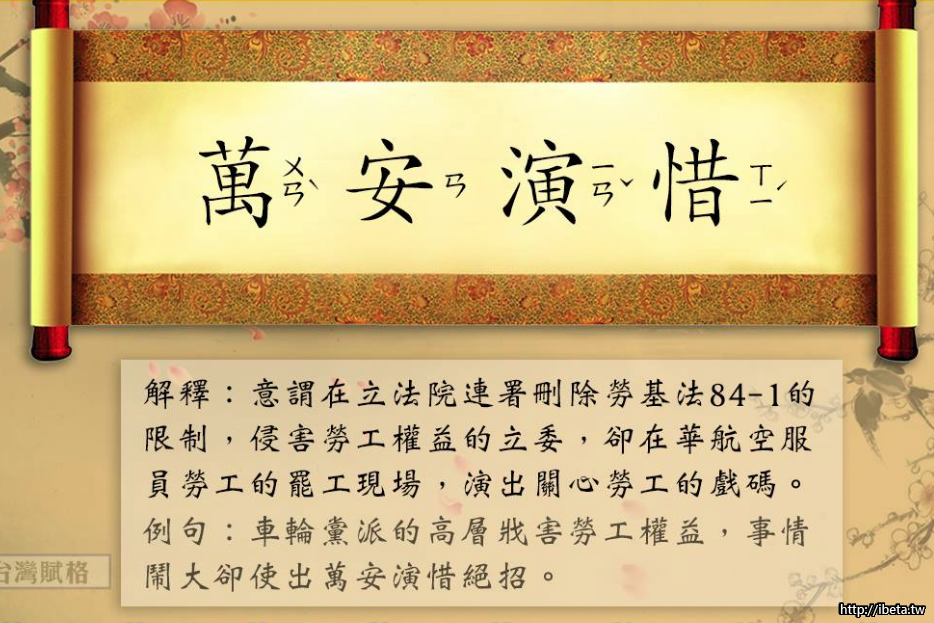 萬ㄨㄢˋ安ㄢ演ㄧㄢˇ惜ㄒㄧˊ
解釋：意謂在立法院連署刪除勞基法84-1的
限制，侵害勞工權益的立委，卻在華航空服
員勞工的罷工現場，演出關心勞工的戲碼。
例句：車輪黨派的高層戕害勞工權益，事情
鬧大卻使出萬安演惜絕招。
台灣賦格
http://ibeta.tw